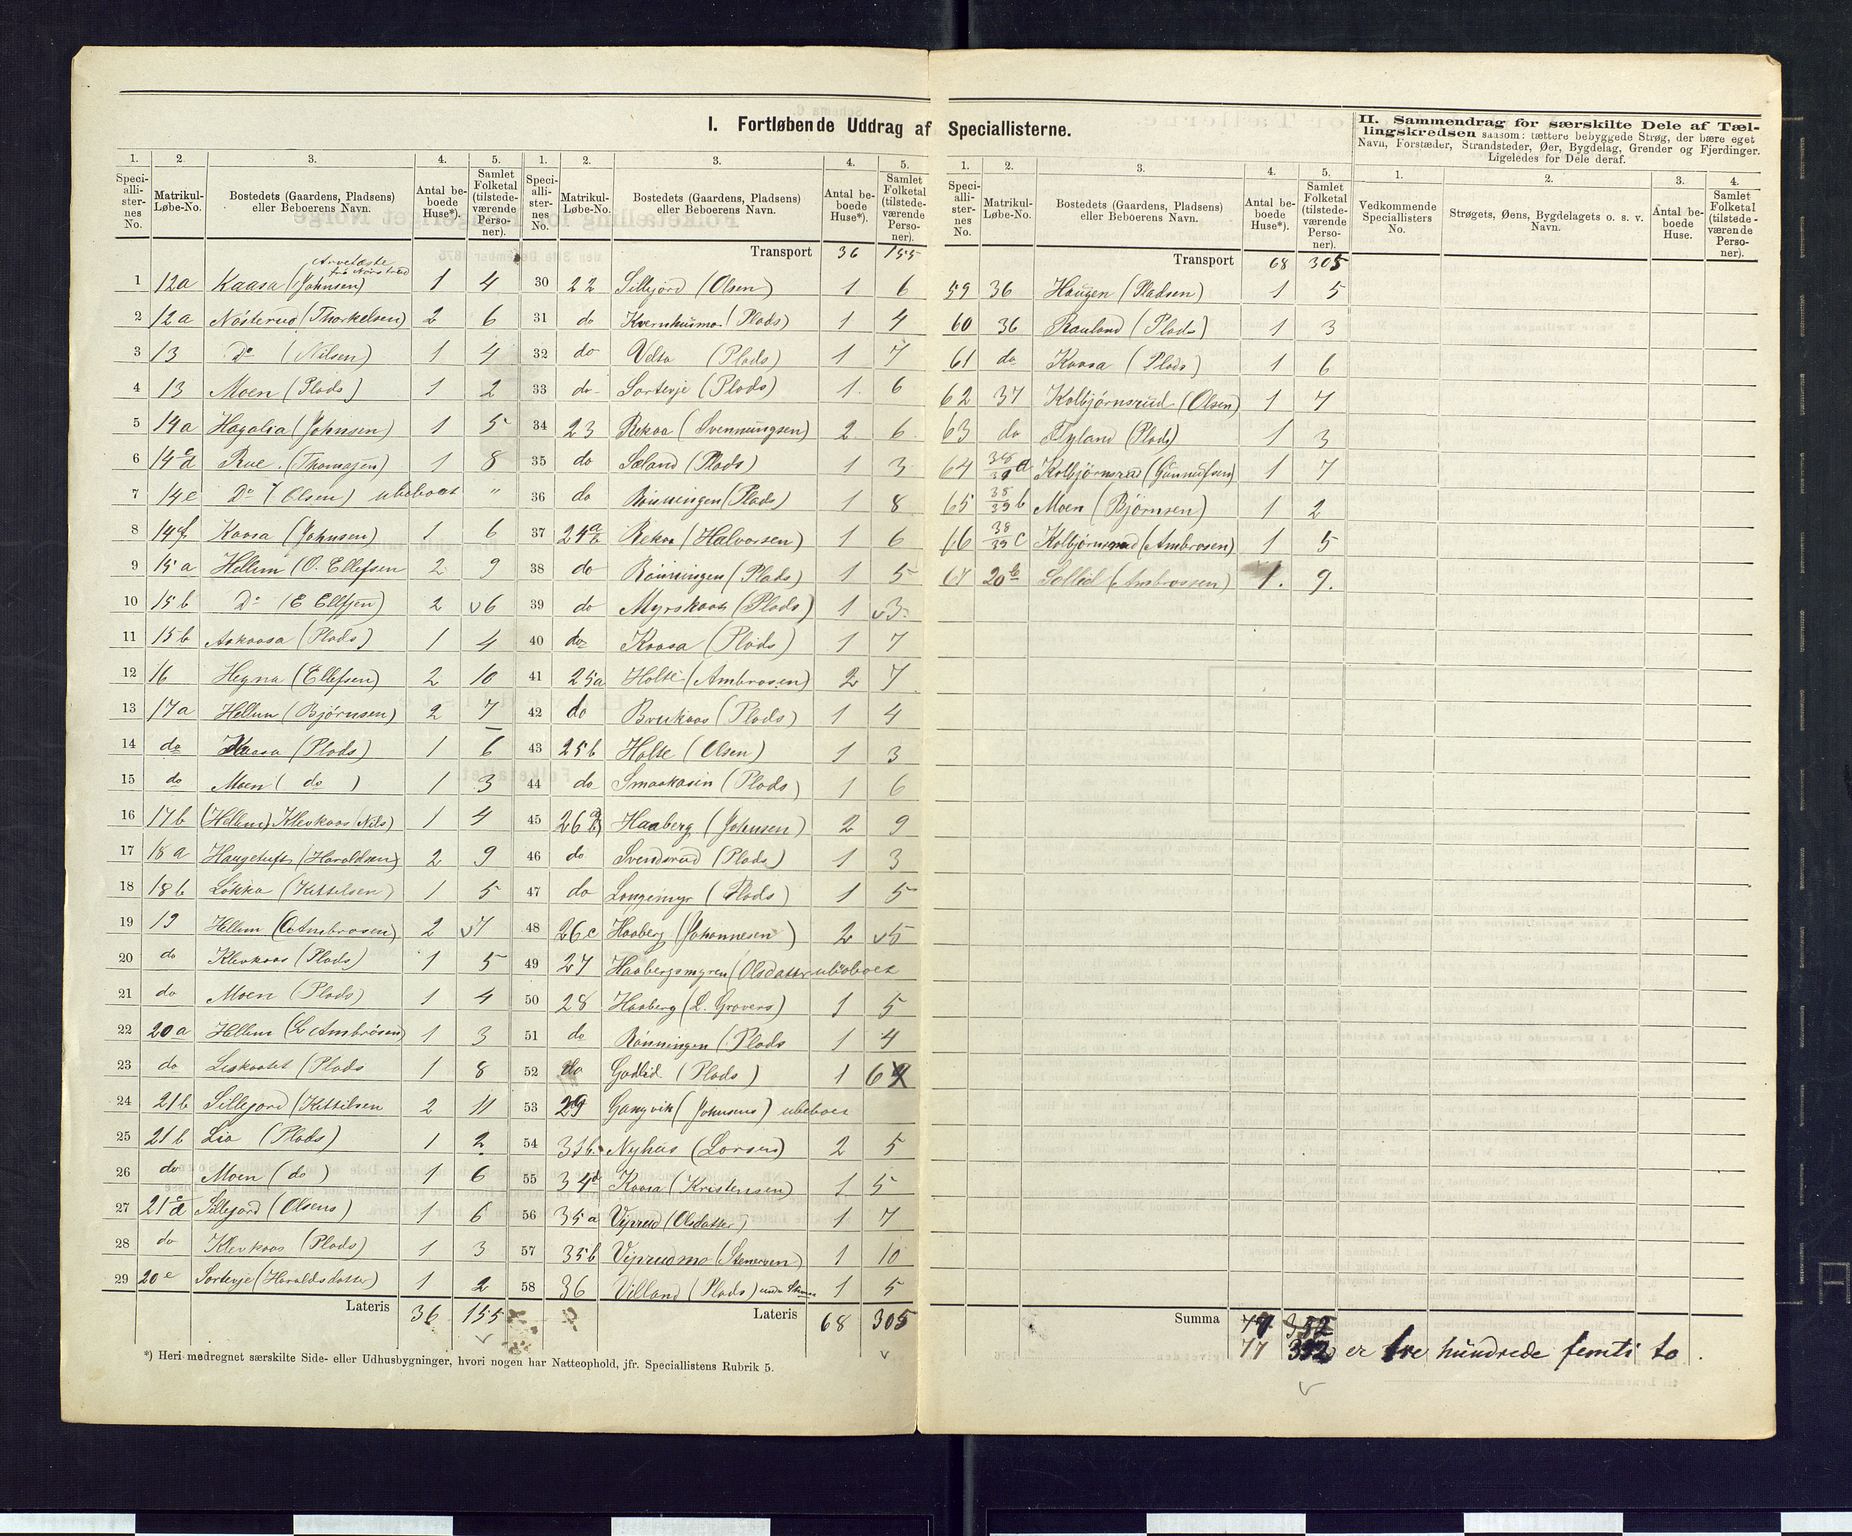 I. Fortløbende Uddrag af Speciallisterne.
II. Sammendrag for særskilte Dele af Tæl-
lingskredsen saasom: tættere bebyggede Strøg, der bære eget
Navn, Forstæder, Strandsteder, Øer, Bygdelag, Grender og Fjerdinger.
Ligeledes for Dele deraf.
1. 2. 3. 4. 5. 1. 2. 3. 4. 5. 1. 2. 3. 4. 5. 1. 2. 3. 4.
Speciallisternes No. Matrikul-Løbe-No. Bostedets (Gaardens, Pladsens) eller Beboerens Navn. Antal beboede Huse*). Samlet Folketal (tilstedeværende Personer).
Speciallisternes No. Matrikul-Løbe-No. Bostedets (Gaardens, Pladsens) eller Beboerens Navn. Antal beboede Huse*). Samlet Folketal (tilstedeværende Personer).
Speciallisternes No. Matrikul-Løbe-No. Bostedets (Gaardens, Pladsens) eller Beboerens Navn. Antal beboede Huse*). Samlet Folketal (tilstedeværende Personer).
Vedkommende Speciallisters No. Strøgets, Øens, Bygdelagets o. s. v. Navn. Antal beboede Huse. Samlet Folketal (tilstedeværende Personer).
1 12a Kaasa (Johnsen) 1 4
2 12a Nösterud (Thorkelsen) 2 6
3 13 Do (Nilsen) 1 4
4 13 Moen (Plads) 1 2
5 14a Hagalia (Johnsen) 1 5
6 14 d Rue (Thomasen) 1 8
7 14e Do (Olsen) ubeboet "
8 14f Kaasa (Johnsen) 1 6
9 15a Hellem (O. Ellefsen 2 9
10 15b Do (E Ellefsen) 2 6
11 15b Aakaasa (Plads) 1 4
12 16 Hegna (Ellefsen) 2 10
13 17a Hellem (Bjørnsen) 2 7
14 do Kaasa (Plads) 1 6
15 do Moen (do) 1 3
16 17b (Hellem) Klevkaas (Nils) 1 4
17 18a Haugetuft (Haraldsen) 2 9
18 18b Løkka (Kittilsen) 1 5
19 19 Hellem (Ambrosen) 2 7
20 do Klevkaas (Plads) 1 5
21 do Moen (Plads) 1 4
22 20a Hellem (L Ambrösen) 1 3
23 do Liskaatet (Plads 1 8
24 21b Sillejord (Kittilsen 2 11
25 21b Lia (Plads) 1 2
26 do Moen (do) 1 6
27 21 d Sillejord (Olsens) 1 6
28 do Klevkaas (Plads) 1 3
29 20e Sortevje (Haraldsdatter) 1 2
Lateris 36 155
*) Heri medregnet særskilte Side- eller Udhusbygninger, hvori nogen har Natteophold, jfr. Speciallistens Rubrik 5.
Transport 36 155
30 22 Sillejord (Olsen) 1 6
31 do Kvernhusmo (Plads) 1 4
32 do Velta (Plads) 1 7
33 do Sortevje (Plads) 1 6
34 23 Rekaa (Svennungsen) 2 6
35 do Sæland (Plads) 1 3
36 do Rönningen (Plads) 1 8
37 24 a b Rekaa (Halvorsen) 1 6
38 do Rönningen (Plads) 1 5
39 do Myrskaas (Plads) 1 3
40 do Kaasa (Plads) 1 7
41 25a Holte (Ambrosen) 2 7
42 do Brukaas (Plads) 1 4
43 25b Holte (Olsen) 1 3
44 do Smaakasin (Plads) 1 6
45 26 a b Haaberg (Johnsen) 2 9
46 do Svendsrud (Plads) 1 3
47 do Langemyr (Plads) 1 5
48 26c Haaberg (Johannesen) 2 5
49 27 Haabergsmyren (Olsdatter ubeboet
50 28 Haaberg (L. Gravers) 1 5
51 do Rönningen (Plads 1 4
52 do Gudlid (Plads) 1 6
53 29 Gangvik (Johnsens) ubeboet
54 31b Nyhus (Larsen) 2 5
55 34d Kaasa (Kristensen) 1 5
56 35a Viprud (Olsdatter) 1 7
57 35b Viprudmo (Stenersen) 1 10
58 36 Villand (Plads) 1 5
Lateris 68 305
Transport 68 305
59 36 Haugen (Pladsen) 1 5
60 36 Rauland (Plads) 1 3
61 do Kaasa (Plads) 1 6
62 37 Kolbjørnsrud (Olsen) 1 7
63 do Tyland (Plads) 1 3
64 38/39 a Kolbjørnsrud (Gunnulfsen) 1 7
65 38/39 b Moen (Bjørnsen) 1 2
66 38/39 c Kolbjørnsrud (Ambrosen) 1 5
67 20b Sollid (Ambrossen) 1. 9.
Summa 77 352
77 352 er tre hundrede femti to.